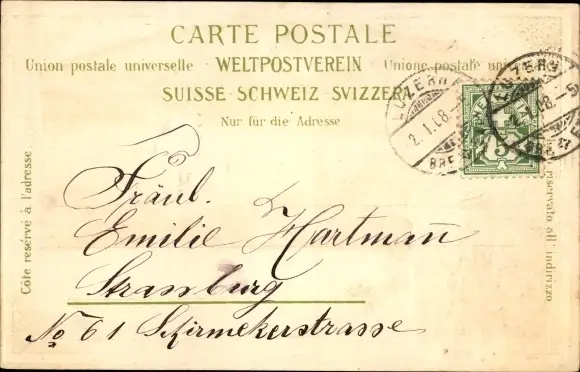 CARTE POSTALE
Union postale universelle WELTPOSTVEREIN Unione postale universale
SUISSE SCHWEIZ SVIZZERA
Nur für die Adresse
LUZERN
2.I.08.
BRF.
LUZERN
2.I.08.-5
BRF.
5
Côte reservé à l'adresse
riservato all'indirizzo
Fräul.
Emilie Hartmañ
Strassburg
No 61 Schirmekerstrasse